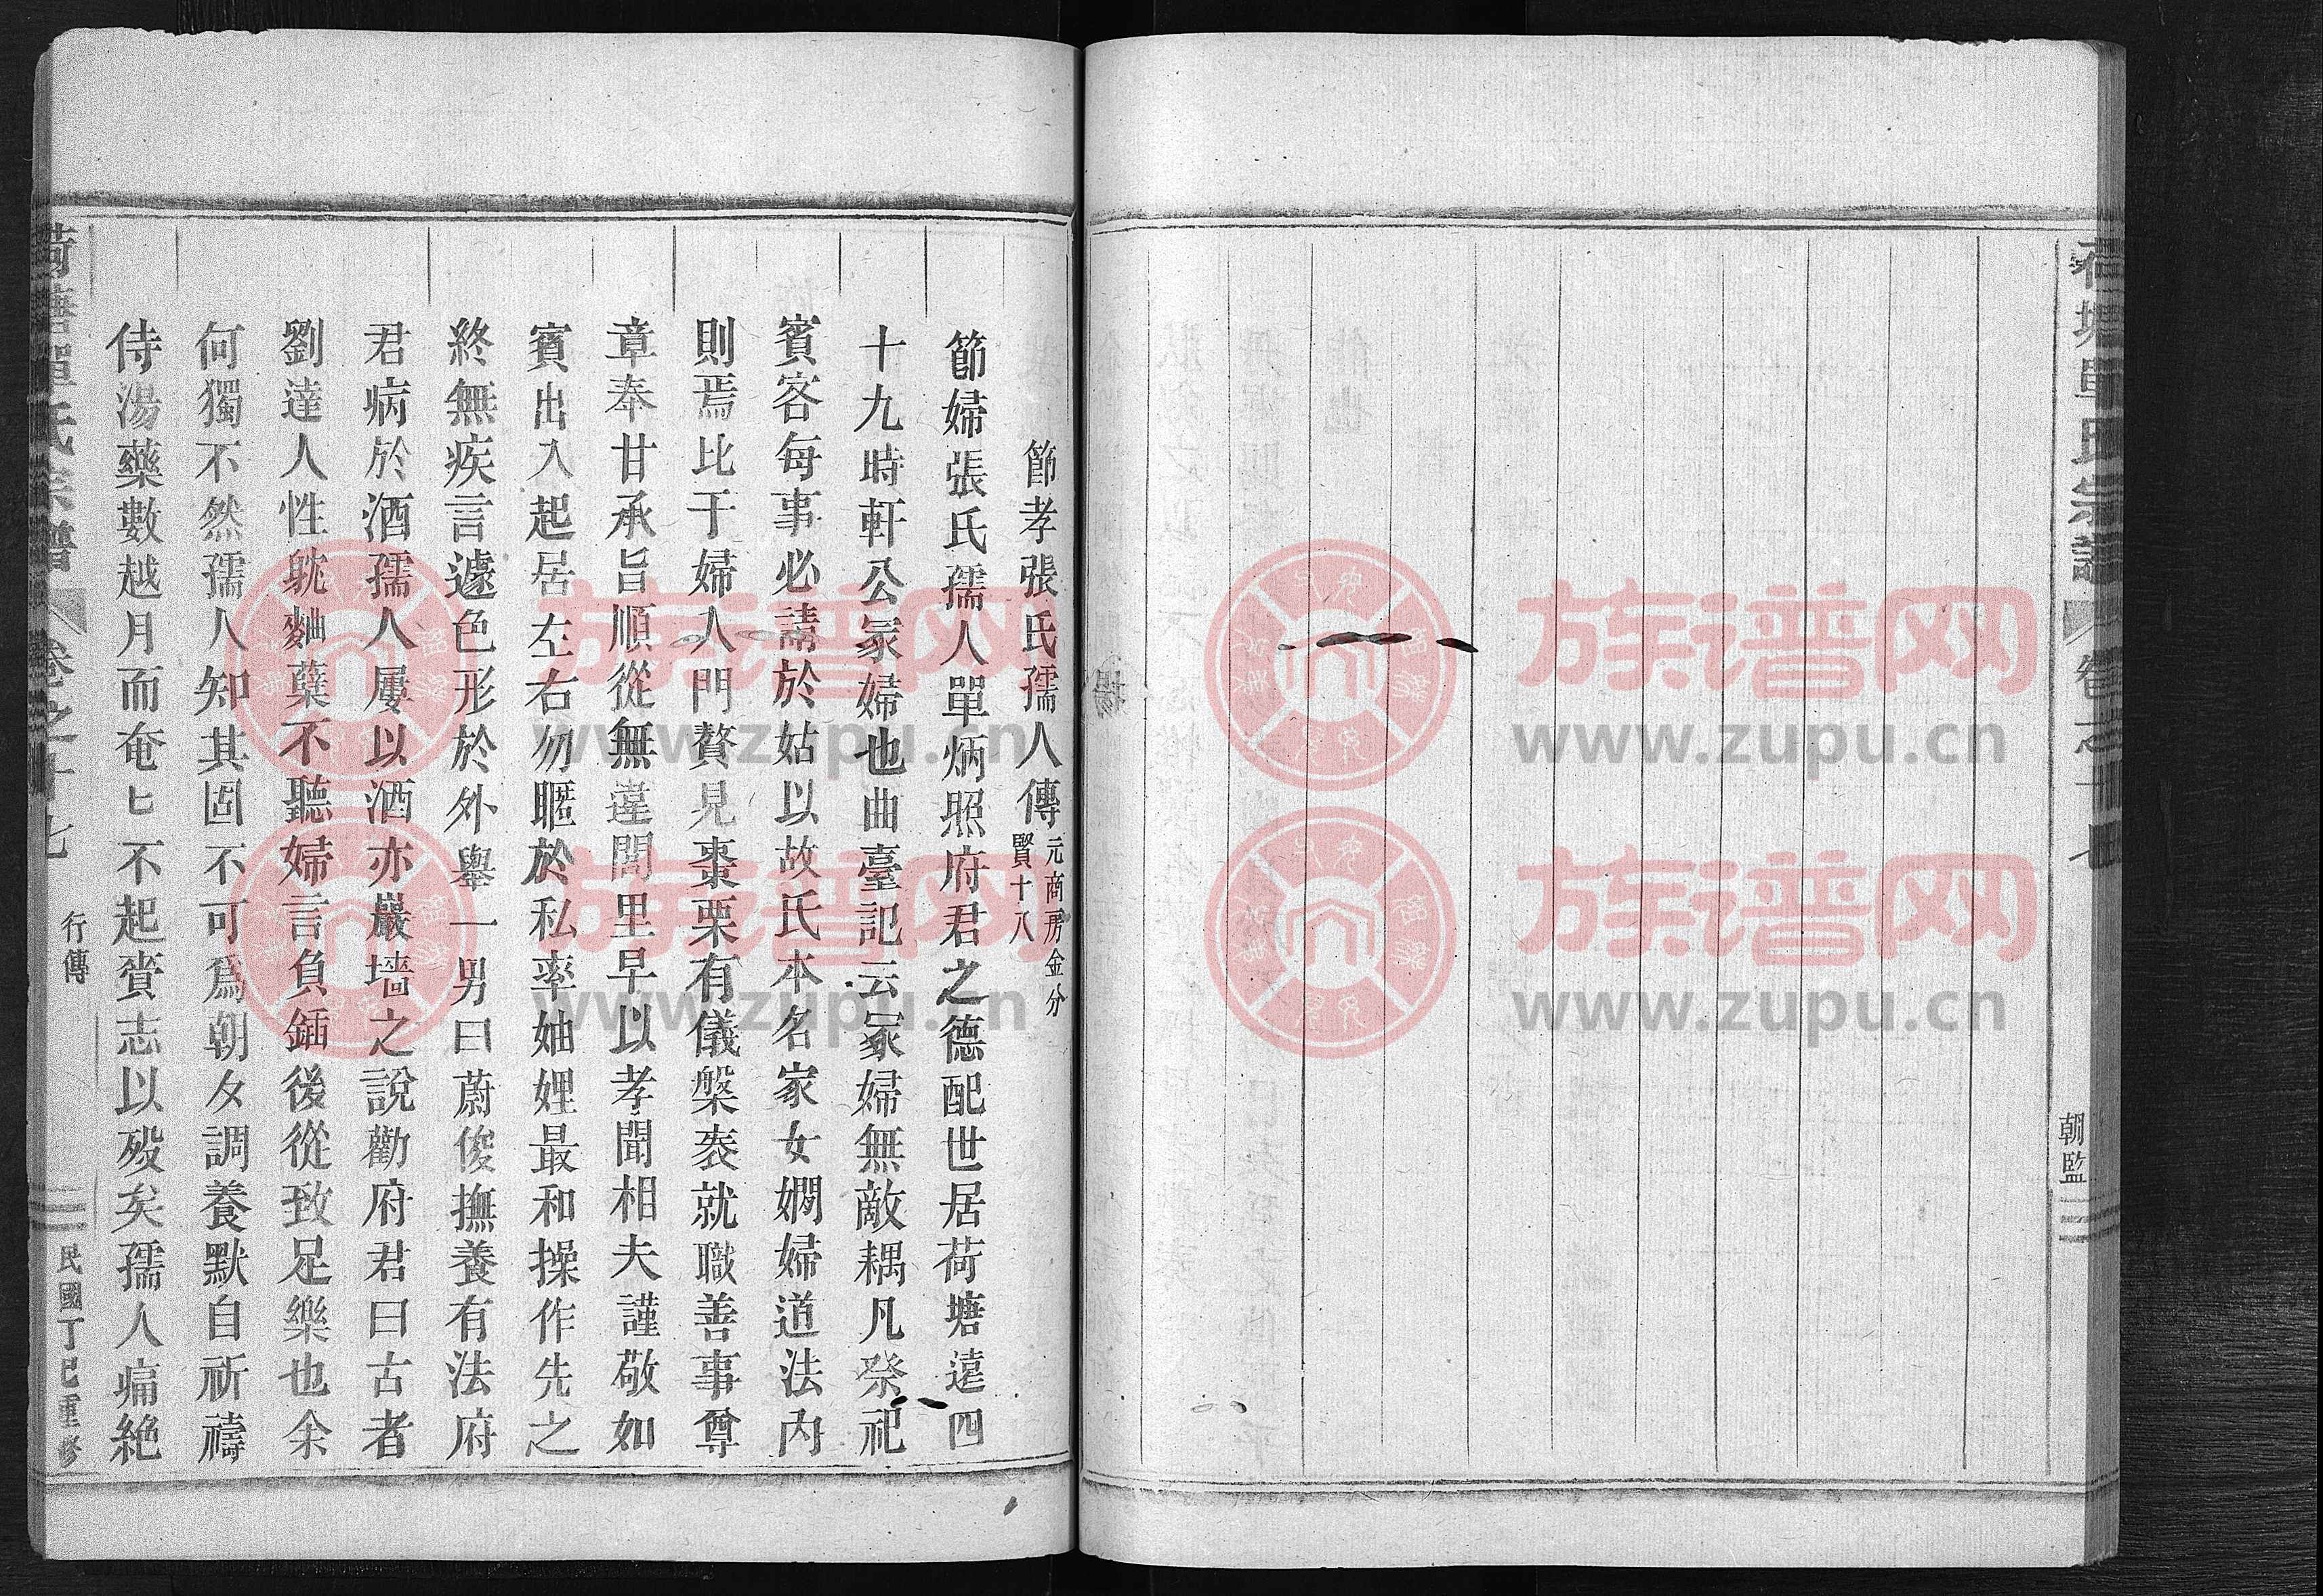 荷塘單氏宗譜
卷之十七
朝監
節孝張氏孺人傳
元商房金分
賢十八
節婦張氏孺人單炳照府君之德配世居荷塘遠四
十九時軒公冢婦也曲臺記云冢婦無敵耦凡祭祀
賓客每事必請於姑以故氏本名家女嫻婦道法內
則焉比于婦入門贅見棗栗有儀槃袠就職善事尊
章奉甘承旨順從無違閭里早以孝聞相夫謹敬如
賓出入起居左右勿暱於私率妯娌最和操作先之
終無疾言遽色形於外舉一男曰蔚俊撫養有法府
君病於酒孺人屢以酒亦嚴墻之說勸府君曰古者
劉達人性耽麯蘖不聽婦言負鍤後從致足樂也余
何獨不然孺人知其固不可爲朝夕調養默自祈禱
侍湯藥數越月而奄匕不起賫志以歿矣孺人痛絕
荷塘單氏宗譜
卷之十七
行傳
民國丁巳重修
族谱网
www.zupu.cn
族谱网
www.zupu.cn
族谱网
www.zupu.cn
族谱网
www.zupu.cn